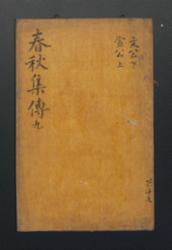 春秋集傳 九
文公下
宣公上